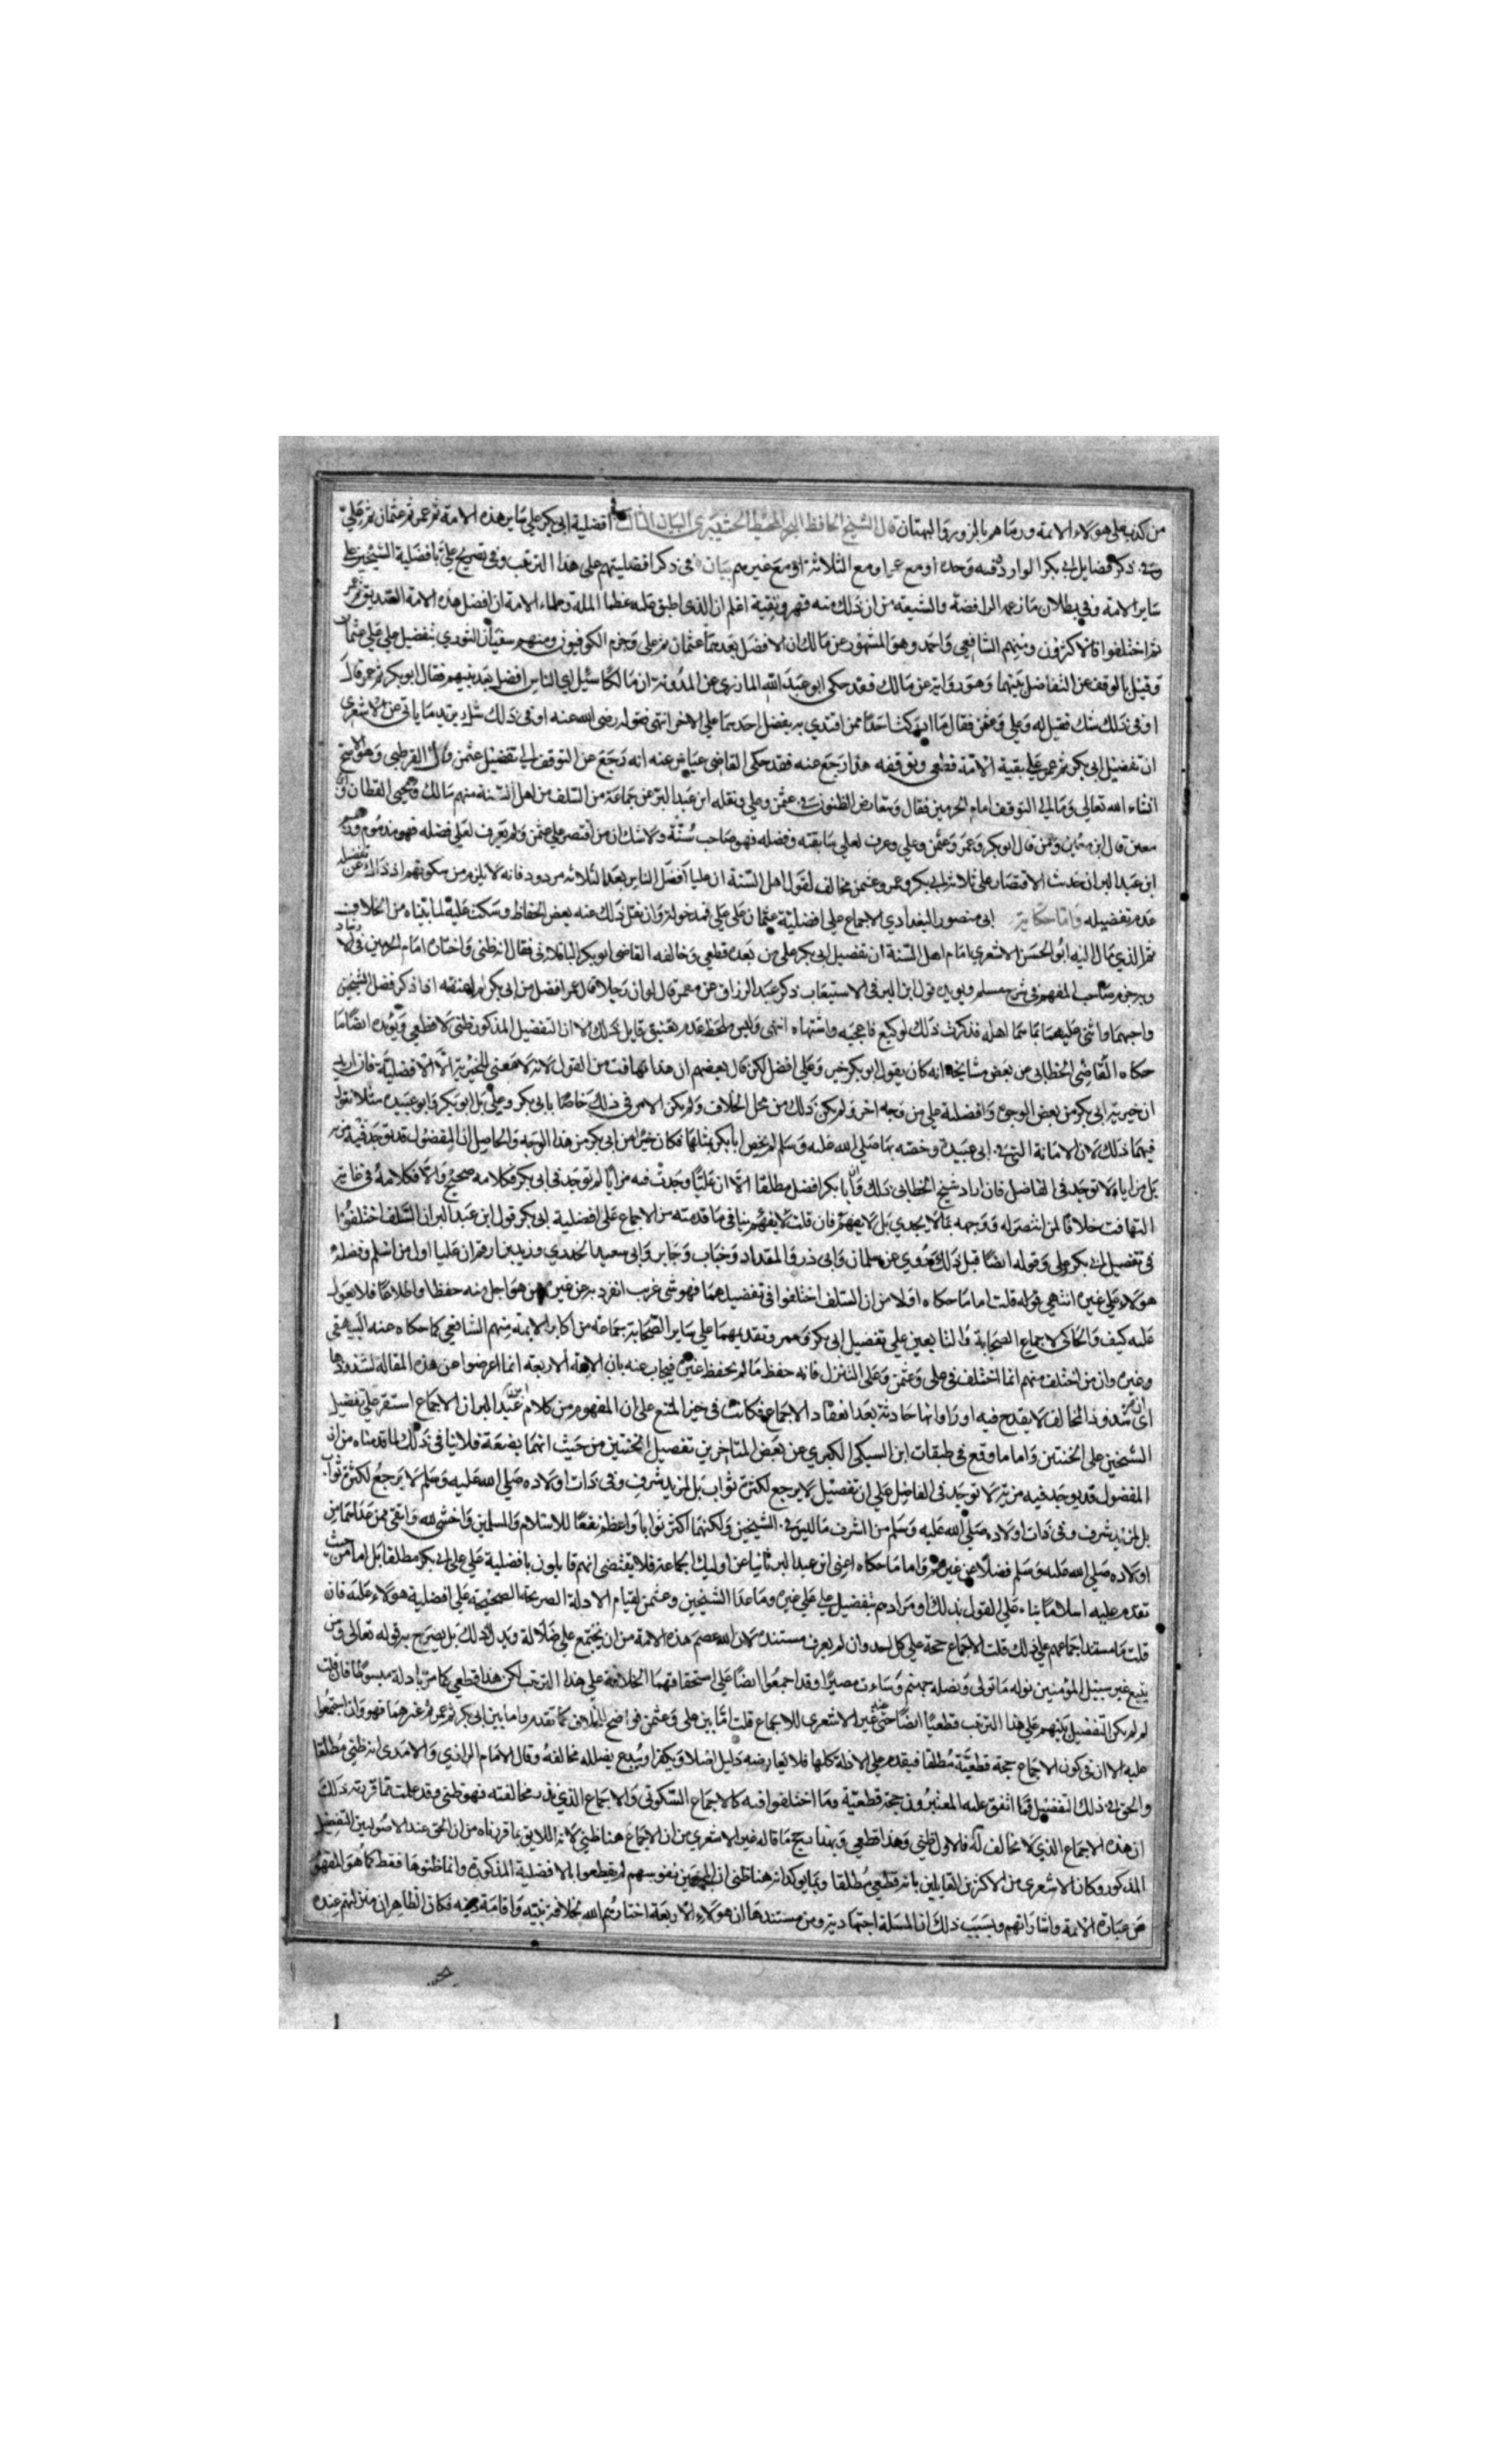 من كذب على هولاء الايمة ورماهم بالزور والبهتان قال الشيخ الحافظ البيان الثالث في افضلية ابي بكر على ساير هذه الامة ثم عمر ثم عثمان ثم علي
وفي ذكر فضايل ابي بكر الواردة فيه وحده او مع عمر او مع الثلاثة او مع غيرهم بيان في ذكر افضليتهم على هذا الترتيب وفي تصريح علي بافضلية الشيخين على
ساير الامة وفي بطلان ما زعمه الرافضة والشيعة من ان ذلك منه قهر وتقية اعلم ان الذي اطبق عليه عظما الملة وعلماء الامة ان افضل هذه الامة الصديق ثم عمر
ثم اختلفوا فالاكثرون ومنهم الشافعي واحمد وهو المشهور عن مالك ان الافضل بعدهما عثمان ثم علي وجزم الكوفيون ومنهم سفيان الثوري بتفضيل علي على عثمان
وقيل بالوقف عن التفاضل بينهما وهو رواية عن مالك فقد حكى ابو عبد الله المازري عن المدونة ان مالكا سئل اي الناس افضل بعد نبيهم فقال ابو بكر ثم عمر قال
اوفي ذلك شك فقيل له وعلي وعثمن فقال ما ادركت احدا ممن اقتدي به يفضل احدهما على الاخر انتهى فقوله رضي الله عنه اوفي ذلك شك يريد ما ياتي عن الاشعري
ان تفضيل ابي بكر ثم عمر على بقية الامة قطعي وتوقفه هذا رجع عنه فقد حكى القاضي عياض عنه انه رجع عن التوقف الى تفضيل عثمن قال القرطبي وهو الاصح
انشاء الله تعالى ومال الى التوقف امام الحرمين فقال وتتعارض الظنون في عثمن وعلي ونقله ابن عبد البر عن جماعة من السلف من اهل السنة منهم مالك ويحيى القطان وابن
معين قال ابن معين ومن قال ابو بكر وعمر وعثمن وعلي وعرف لعلي سابقته وفضله فهو صاحب سنة ولا شك ان من اقتصر على عثمن ولم يعرف لعلي فضله فهو مذموم
ابن عبد البر ان حدث الاقتصار على ثلاثة ابي بكر وعمر وعثمن مخالف لقول اهل السنة ان عليا افضل الناس بعد الثلاثه مردود فانه لا يلزم من سكوتهم اذ ذاك عن تفضيله
عدم تفضيله واما حكاية ابي منصور البغدادي الاجماع على افضلية عثمان على علي فمدخولة وان نقل ذلك عنه بعض الحفاظ وسكت عليه لما بيناه من الخلاف
ثم الذي مال اليه ابو الحسن الاشعري امام اهل السنة ان تفضيل ابي بكر على من بعده قطعي وخالفه القاضي ابو بكر الباقلاني فقال انه ظني واختاره امام الحرمين في الارشاد
وبه جزم صاحب المفهم في شرح مسلم ويويده قول ابن البر في الاستيعاب ذكر عبد الرزاق عن معمر قال لو ان رجلا قال عمر افضل من ابي بكر ما عنفته اذا ذكر فضل الشيخين
واحبهما واثنى عليهما بما هما اهله فذكرت ذلك لوكيع فاعجبه واشتهاه انتهى وليس ملحظ عدم تعنيف قايل ذلك الا ان التفضيل المذكور ظني لا قطعي ويويده ايضا ما
حكاه القاضي الخطابي عن بعض مشايخه انه كان يقول ابو بكر خير وعلي افضل لكن قال بعضهم ان هذا تهافت من القول لانه لا معنى للخيرية الا الافضلية فان اريد
ان خيرية ابي بكر من بعض الوجوه وافضلية علي من وجه اخر لم يكن ذلك من محل الخلاف ولم يكن الامر في ذلك خاصا بابي بكر وعلي بل ابو بكر وابو عبيده مثلا نقول
فيهما ذلك لان الامانة التي في ابي عبيدة وخصه بها صلى الله عليه وسلم لم يخص ابا بكر بمثلها فكان خيرا من ابي بكر من هذا الوجه والحاصل ان المفضول قد توجد فيه مزية
بل مزايا لا توجد في الفاضل فان اراد شيخ الخطابي ذلك وان ابا بكر افضل مطلقا الا ان عليا وجدت فيه مزايا لم توجد في ابي بكر فكلامه صحيح والا فكلامه في غاية
التهافت خلافا لمن انتصر له ووجهه بما لا يجدي بل لا يفهم فان قلت ينافي ما قدمته من الاجماع على افضلية ابي بكر قول ابن عبد البر ان السلف اختلفوا
في تفضيل ابي بكر وعلي وقوله ايضا قبل ذلك وروي عن سلمان وابي ذر والمقداد وخباب وجابر وابي سعيد الخدري وزيد بن ارقم ان عليا اول من اسلم وفضله
هولاء على غيره انتهى قوله قلت اما ما حكاه اولا من ان السلف اختلفوا في تفضيلهما فهو شي غريب انفرد به عن غيره ممن هو اجل منه حفظا واطلاعا فلا يعول
عليه كيف والحاكي لاجماع الصحابة والتابعين على تفضيل ابي بكر وعمر وتقديمهما على ساير الصحابة جماعة من اكابر الايمة منهم الشافعي كما حكاه عنه البيهقي
وغيره وان من اختلف منهم انما اختلف في علي وعثمن وعلى التنزل فانه حفظ ما لم يحفظ غيره فيجاب عنه بان الايمة الاربعة انما اعرضوا عن هذه المقالة لشذوذها
اي ان شذوذ المخالف لا يقدح فيه او راوا انها حادثة بعد انعقاد الاجماع فكانت في حيز المنع على ان المفهوم من كلام ابن عبد البر ان الاجماع استقر على تفضيل
الشيخين على الختنين واما ما وقع في طبقات ابن السبكي الكبرى عن بعض المتاخرين تفضيل الحسنين من حيث انهما بضعة فلا ينافي ذلك لما قدمناه من ان
المفضول قد يوجد فيه مزية لا توجد في الفاضل على ان تفضيل لا يرجع لكثرة ثواب بل لمزيد شرف وفي ذات اولاده صلى الله عليه وسلم لا يرجع لكثرة ثواب
بل لمزيد شرف وفي ذات اولاده صلى الله عليه وسلم من الشرف ما ليس في الشيخين ولكنهما اكثر ثوابا واعظم نفعا للاسلام والمسلمين واخشى لله واتقى ممن عداهما من
اولاده صلى الله عليه وسلم فضلا عن غيرهم واما ما حكاه اعني ابن عبد البر ثانيا عن اوليك الجماعة فلا يقتضي انهم قايلون بافضلية علي على ابي بكر مطلقا بل اما من حيث
تقدمه عليه اسلاما بناء على القول بذلك او مرادهم بتفضيل علي على غيره وما عدا الشيخين وعثمن لقيام الادلة الصريحة الصحيحة على افضلية هولاء عليه فان
قلت ما مستند اجماعهم على ذلك قلت الاجماع حجة على كل احد وان لم يعرف مستنده لان الله عصم هذه الامة من ان تجتمع على ضلالة ويدل لذلك بل يصرح به قوله تعالى ومن
يتبع غير سبيل المؤمنين نوله ما تولى ونصله جهنم وساءت مصيرا وقد اجمعوا ايضا على استحقاقهم الخلافة على هذا الترتيب لكن هذا قطعي كما مر بادلة مبسوطا فان قلت
لم لم يكن التفضيل بينهم على هذا الترتيب قطعيا ايضا حتى عند غير الاشعري للاجماع قلت اما بين علي وعثمن فواضح للخلاف كما تقدم واما بين ابي بكر ثم عمر ثم غيرهما فهو وان اجمعوا
عليه الا ان في كون الاجماع حجة قطعية مطلقا فيقدم على الادلة كلها فلا يعارضه دليل اصلا ويكفر او يبدع ويضلل مخالفه وقال الامام الرازي والامدي انه ظني مطلقا
والحق في ذلك التفضيل فما اتفق عليه المعتبرون حجة قطعية وما اختلفوا فيه كالاجماع السكوتي والاجماع الذي يذر مخالفته فهو ظني وقد علمت مما قررته ذلك
ان هذه الاجماع الذي لا مخالف له فالاول ظني وهذا قطعي وبهذا يرجح ما قاله غير الاشعري من ان الاجماع هنا ظني لانه اللايق بما قررناه من ان الحق عند الاصوليين التفضيل
المذكور وكان الاشعري من الاكثرين القايلين بانه قطعي مطلقا ومما يوكد انه هنا ظني ان المجمعين نفوسهم لم يقطعوا بالافضلية المذكورة وانما ظنوها فقط كما هو المفهوم
من عبارة الايمة واشاراتهم وبسبب ذلك ان المسئلة اجتهادية ومن مستندها ان هولاء الاربعة اختارهم الله بخلافة نبيه واقامة دينه فكان الظاهر ان منزلتهم عنده